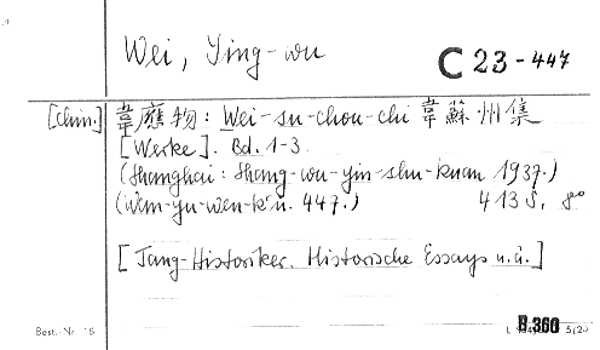 Wei, Ying-wu
C 23-447
[Chin.] 韋應物: Wei-su-chou-chi 韋蘇州集
[Werke]. Bd. 1-3.
(Shanghai: Shang-wu-yin-shu-kuan 1937.)
(Wan-yu-wen-k'u. 447.) 413 S. 8°
[Tang-Historiker. Historische Essays u.ä.]
Best.-Nr 15
B.360
5/20